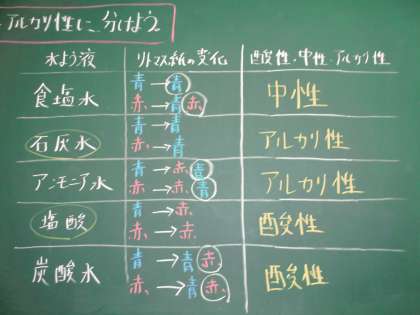 アルカリ性に分けよう
水よう液 リトマス紙の変化 酸性・中性・アルカリ性
青→青
食塩水 中性
赤→青赤
青→青
石灰水 アルカリ性
赤→青
青→赤青
アンモニア水 アルカリ性
赤→赤青
青→赤
塩酸 酸性
赤→赤
青→青赤
炭酸水 酸性
赤→青赤